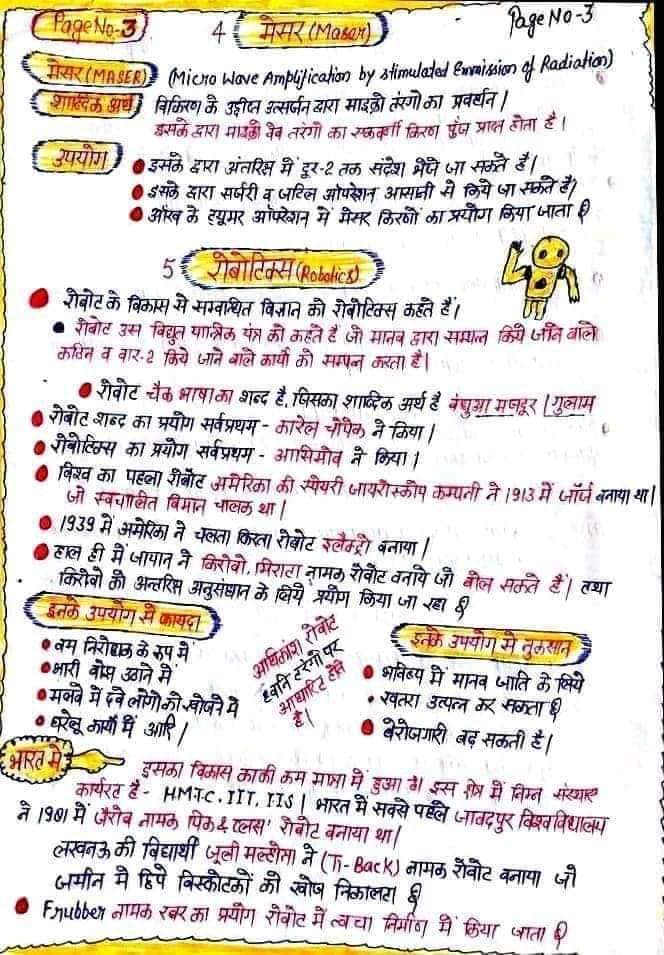 Page No-3
4 मेसर (Maser)
Page No-3
मेसर (MASER) (Micro Wave Amplification by stimulated Emmission of Radiation)
शाब्दिक अर्थ विकिरण के उद्दीप्त उत्सर्जन द्वारा माइक्रो तरंगो का प्रवर्धन।
इसके द्वारा माइक्रो वेव तरंगो का एकवर्णी किरण पुँज प्राप्त होता है।
उपयोग
इसके द्वारा अंतरिक्ष में दूर-2 तक संदेश भेजे जा सकते है।
इसके द्वारा सर्जरी व जटिल ऑपरेशन आसानी से किये जा सकते है।
आँख के ट्यूमर ऑपरेशन में मेसर किरणों का प्रयोग किया जाता है
5 रोबोटिक्स (Robotics)
रोबोट के विकास से सम्बन्धित विज्ञान को रोबोटिक्स कहते हैं।
रोबोट उस विद्युत यान्त्रिक यंत्र को कहते है जो मानव द्वारा सम्पन्न किये जाने वाले
कठिन व बार-2 किये जाने वाले कार्यो को सम्पन्न करता है।
रोबोट चैक भाषा का शब्द है, जिसका शाब्दिक अर्थ है बंधुआ मजदूर। गुलाम
रोबोट शब्द का प्रयोग सर्वप्रथम - कारेल चोपेक ने किया।
रोबोटिक्स का प्रयोग सर्वप्रथम - आसिमोव ने किया।
विश्व का पहला रोबोट अमेरिका की स्पेयरी जायरोस्कोप कम्पनी ने 1913 में जॉर्ज बनाया था।
जो स्वचालित विमान चालक था।
1939 में अमेरिका ने चलता फिरता रोबोट इलैक्ट्रो बनाया।
हाल ही में जापान ने किरोबो, मिराटा नामक रोबोट बनाये जो बोल सकते है। तथा
किरोबो को अन्तरिक्ष अनुसंधान के लिये प्रयोग किया जा रहा है
इनके उपयोग से फायदा
बम निरोधक के रूप में
भारी बोझ उठाने में
मलबे में दबे लोगो को खोजने में
घरेलू कार्यो में आदि।
अधिकांश रोबोट
ध्वनि तरंगो पर
आधारित होते
है।
इनके उपयोग से नुकसान
भविष्य में मानव जाति के लिये
खतरा उत्पन्न कर सकता है
बेरोजगारी बढ़ सकती है।
भारत में
इसका विकास काफी कम मात्रा में हुआ है। इस क्षेत्र में निम्न संस्थाए
कार्यरत है - H.M.T.C. IIT, IIS। भारत में सबसे पहले जादवपुर विश्वविद्यालय
ने 1981 में जैरोब नामक पिक & प्लेस' रोबोट बनाया था।
लखनऊ की विद्यार्थी जूली मल्होत्रा ने (Ti-Back) नामक रोबोट बनाया जो
जमीन में छिपे विस्फोटकों को खोज निकालता है
Frubber नामक रबर का प्रयोग रोबोट में त्वचा निर्माण में किया जाता है